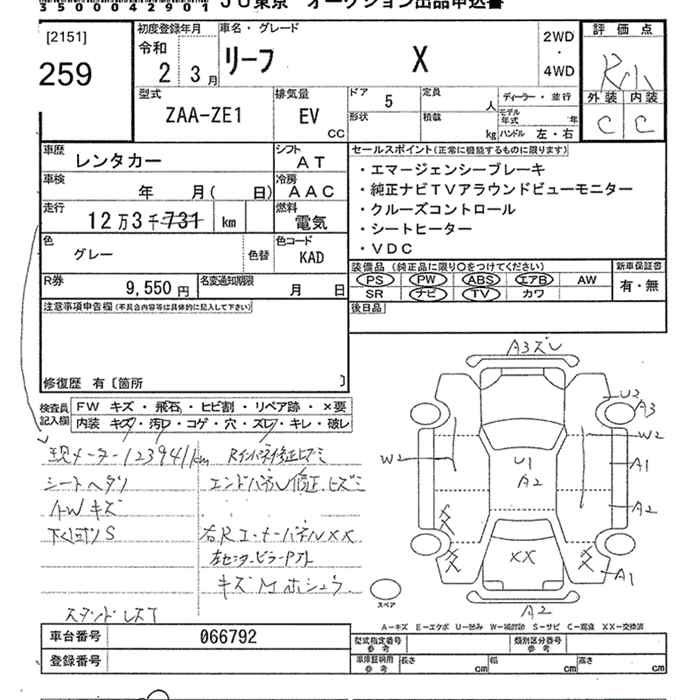 35000042901 JU東京 オークション出品申込書
[2151]
259
初度登録年月
令和
2 3月
車名・グレード
リーフ X
2WD
・
4WD
評価点
R小
外装 内装
C C
型式
ZAA-ZE1
排気量
EV
CC
ドア 5
定員 人
ディーラー・並行
形状
積載 kg
モデル年式 年
ハンドル 左・右
車歴
レンタカー
シフト
AT
車検
年 月( 日)
冷房
AAC
走行
12万3千731 km
燃料
電気
色
グレー
色替
色コード
KAD
R券
9,550円
名変通知期限
月 日
セールスポイント(正常に機能するものに限ります)
・エマージェンシーブレーキ
・純正ナビTVアラウンドビューモニター
・クルーズコントロール
・シートヒーター
・VDC
装備品 (純正品に限り○をつけてください)
新車保証書
PS PW ABS エアB AW
SR ナビ TV カワ
有・無
後日品
注意事項申告欄(不具合内容等は具体的に記入して下さい)
修復歴 有〔箇所 〕
検査員
記入欄
FW キズ・飛石・ヒビ割・リペア跡・×要
内装 キズ・汚レ・コゲ・穴・ズレ・キレ・破レ
現メーター123941km
シートヘタリ
AWキズ
下回りS
エンドパネル修正、ヒズミ
右Rインナーパネル××
左センターピラー
キズ
A3ズレ
U2
A3
W2
A1
A2
W2
U1
A2
××
××
××
××
A1
A2
スペア
A-キズ E-エクボ U-凹み W-補修跡 S-サビ C-腐食 XX-交換済
車台番号
066792
登録番号
型式指定番号
参考
類別区分番号
参考
車庫証明用
参考
長さ cm
幅 cm
高さ cm